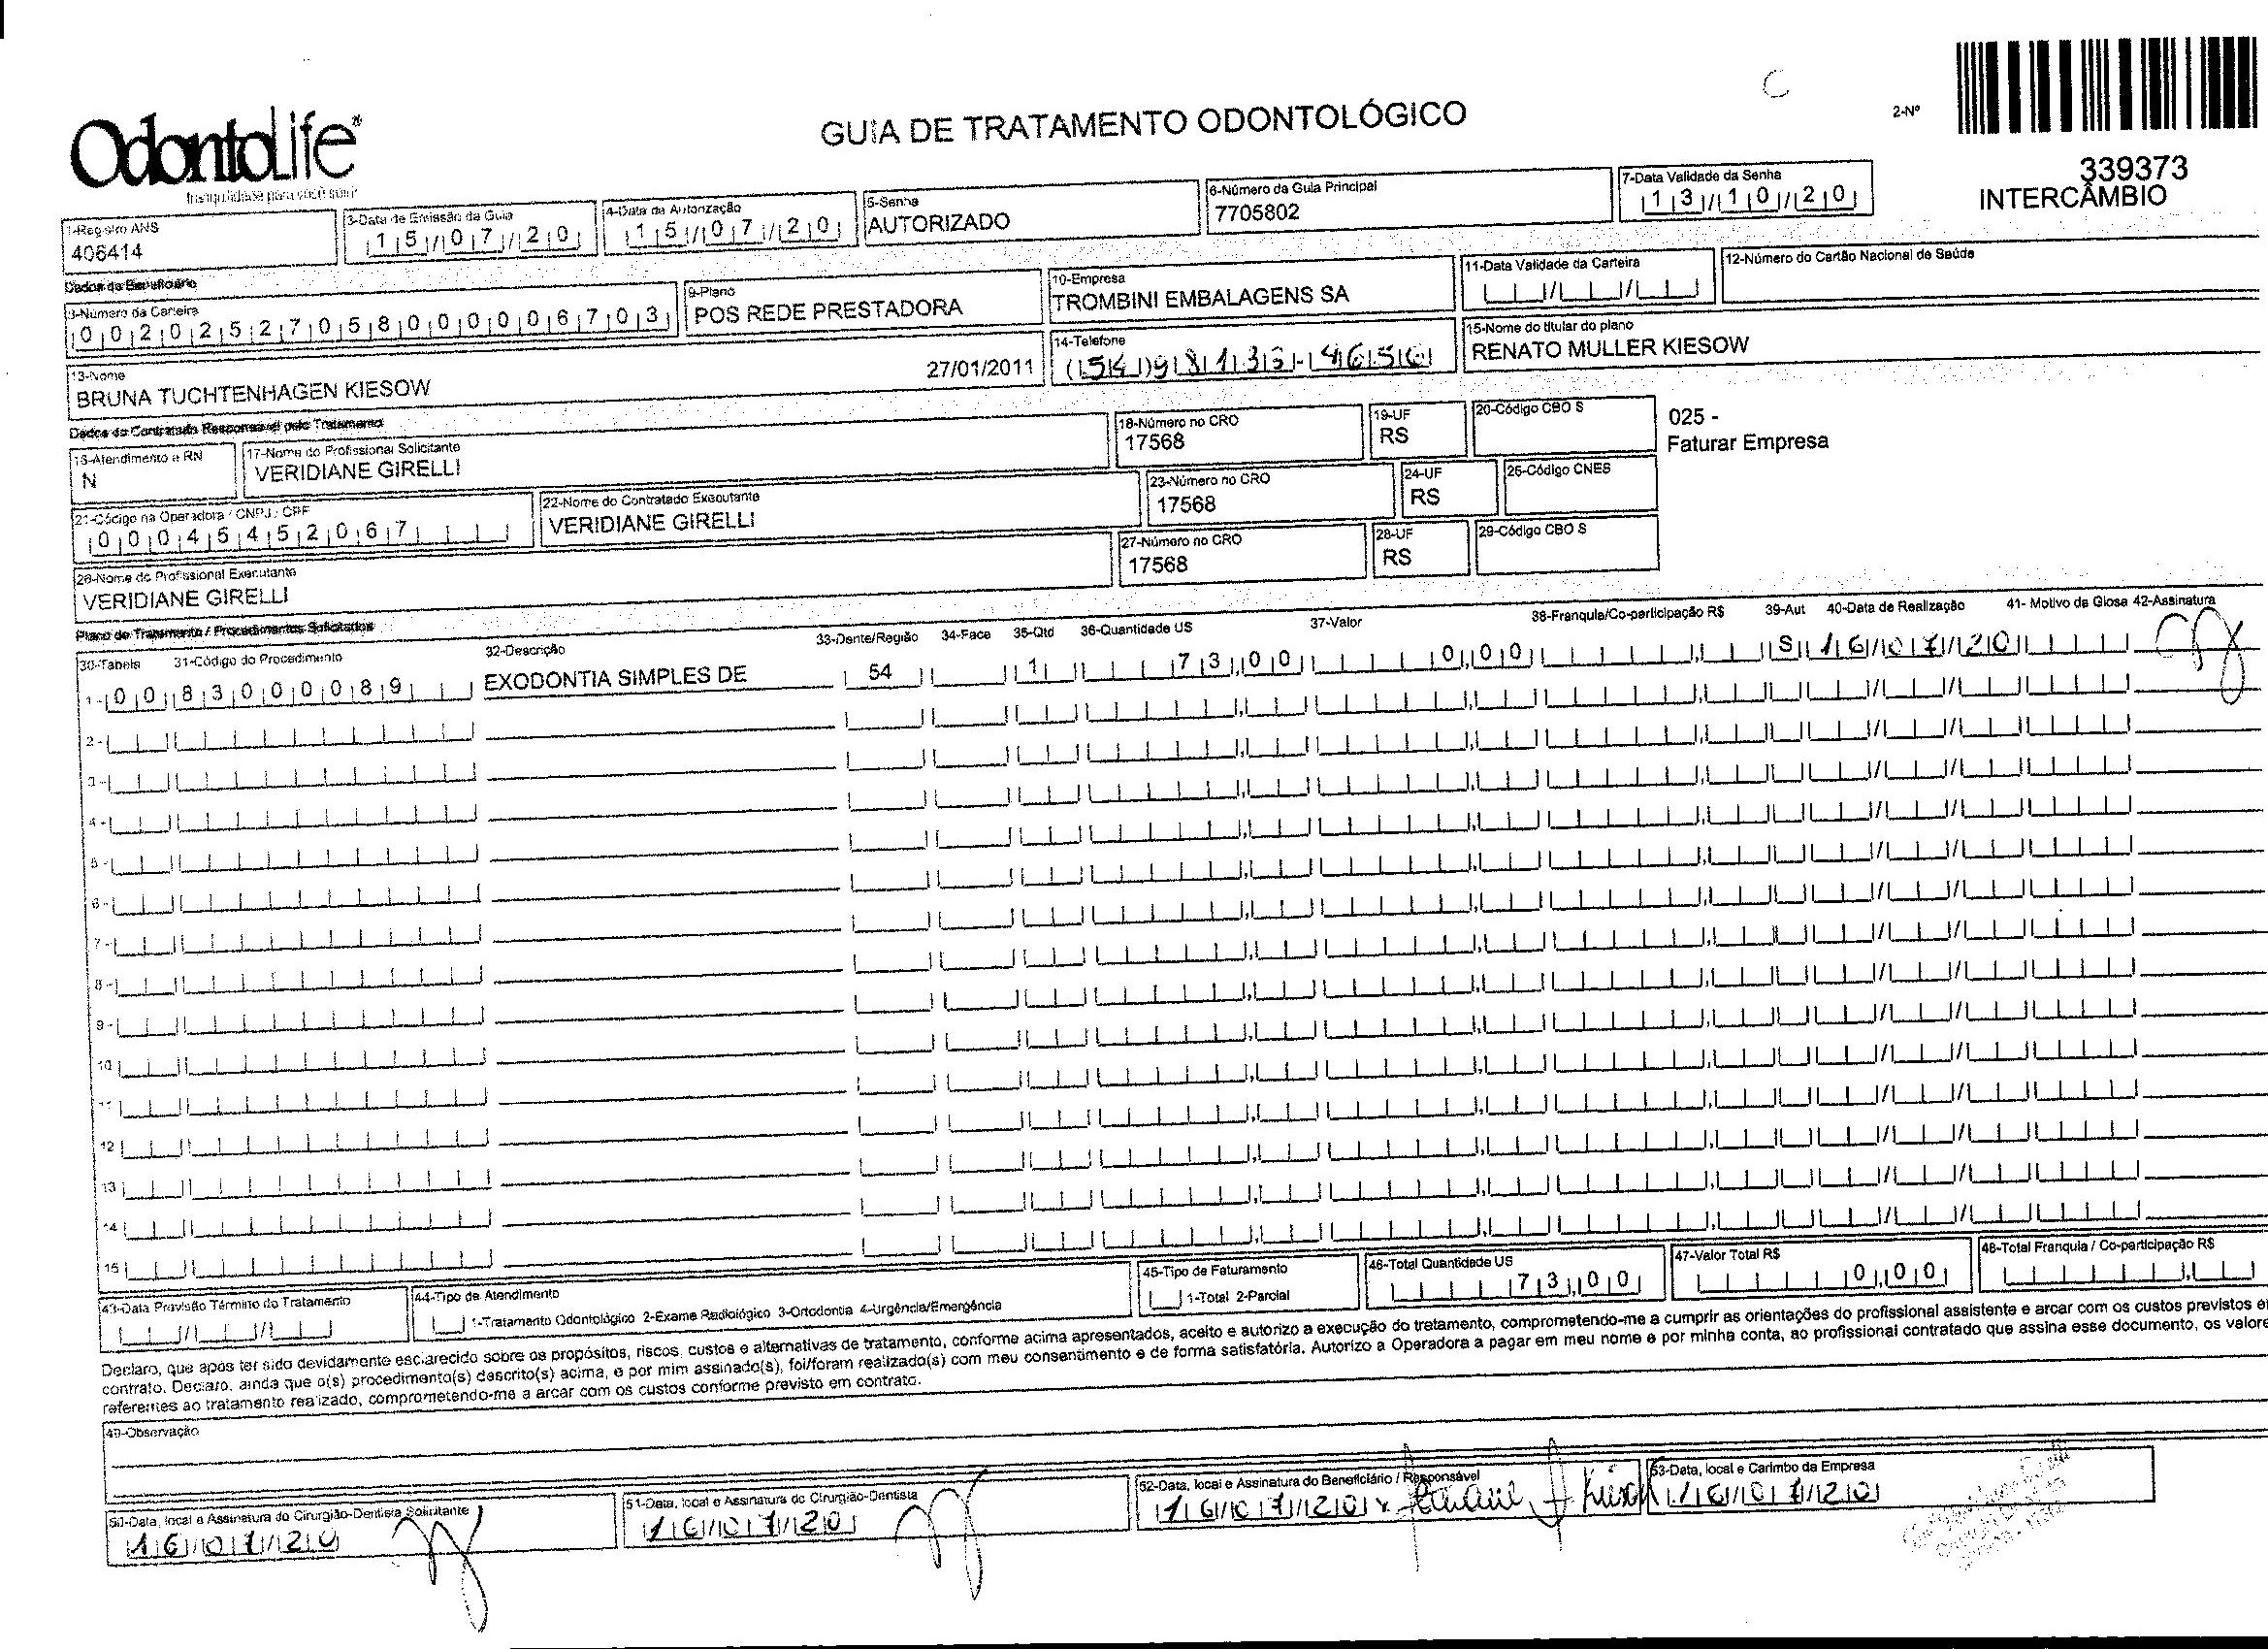 OdontoLife®
tranquilidade para você sorrir
GUIA DE TRATAMENTO ODONTOLÓGICO
2-Nº
339373
INTERCÂMBIO
1-Registro ANS
406414
3-Data de Emissão da Guia
15/07/20
4-Data da Autorização
15/07/20
5-Senha
AUTORIZADO
6-Número da Guia Principal
7705802
7-Data Validade da Senha
13/10/20
Dados do Beneficiário
8-Número da Carteira
00202527058000006703
9-Plano
POS REDE PRESTADORA
10-Empresa
TROMBINI EMBALAGENS SA
11-Data Validade da Carteira
12-Número do Cartão Nacional de Saúde
13-Nome
BRUNA TUCHTENHAGEN KIESOW
27/01/2011
14-Telefone
(54)98133-4656
15-Nome do titular do plano
RENATO MULLER KIESOW
Dados do Contratado Responsável pelo Tratamento
16-Atendimento a RN
N
17-Nome do Profissional Solicitante
VERIDIANE GIRELLI
18-Número no CRO
17568
19-UF
RS
20-Código CBO S
025 -
Faturar Empresa
21-Código na Operadora / CNPJ / CPF
00045452067
22-Nome do Contratado Executante
VERIDIANE GIRELLI
23-Número no CRO
17568
24-UF
RS
25-Código CNES
26-Nome do Profissional Executante
VERIDIANE GIRELLI
27-Número no CRO
17568
28-UF
RS
29-Código CBO S
Plano de Tratamento / Procedimentos Solicitados
30-Tabela 31-Código do Procedimento 32-Descrição 33-Dente/Região 34-Face 35-Qtd 36-Quantidade US 37-Valor 38-Franquia/Co-participação R$ 39-Aut 40-Data de Realização 41- Motivo da Glosa 42-Assinatura
1- 00 83000089 EXODONTIA SIMPLES DE 54 1 73,00 0,00 S 16/07/20
2-
3-
4-
5-
6-
7-
8-
9-
10
11
12
13
14
15
43-Data Previsão Término do Tratamento
44-Tipo de Atendimento
1-Tratamento Odontológico 2-Exame Radiológico 3-Ortodontia 4-Urgência/Emergência
45-Tipo de Faturamento
1-Total 2-Parcial
46-Total Quantidade US
73,00
47-Valor Total R$
0,00
48-Total Franquia / Co-participação R$
Declaro, que após ter sido devidamente esclarecido sobre os propósitos, riscos, custos e alternativas de tratamento, conforme acima apresentados, aceito e autorizo a execução do tratamento, comprometendo-me a cumprir as orientações do profissional assistente e arcar com os custos previstos e
contrato. Declaro, ainda que o(s) procedimento(s) descrito(s) acima, e por mim assinado(s), foi/foram realizado(s) com meu consentimento e de forma satisfatória. Autorizo a Operadora a pagar em meu nome e por minha conta, ao profissional contratado que assina esse documento, os valore
referentes ao tratamento realizado, comprometendo-me a arcar com os custos conforme previsto em contrato.
49-Observação
50-Data, local e Assinatura do Cirurgião-Dentista Solicitante
16/07/20
51-Data, local e Assinatura do Cirurgião-Dentista
16/07/20
52-Data, local e Assinatura do Beneficiário / Responsável
16/07/20 x
53-Data, local e Carimbo da Empresa
16/07/20